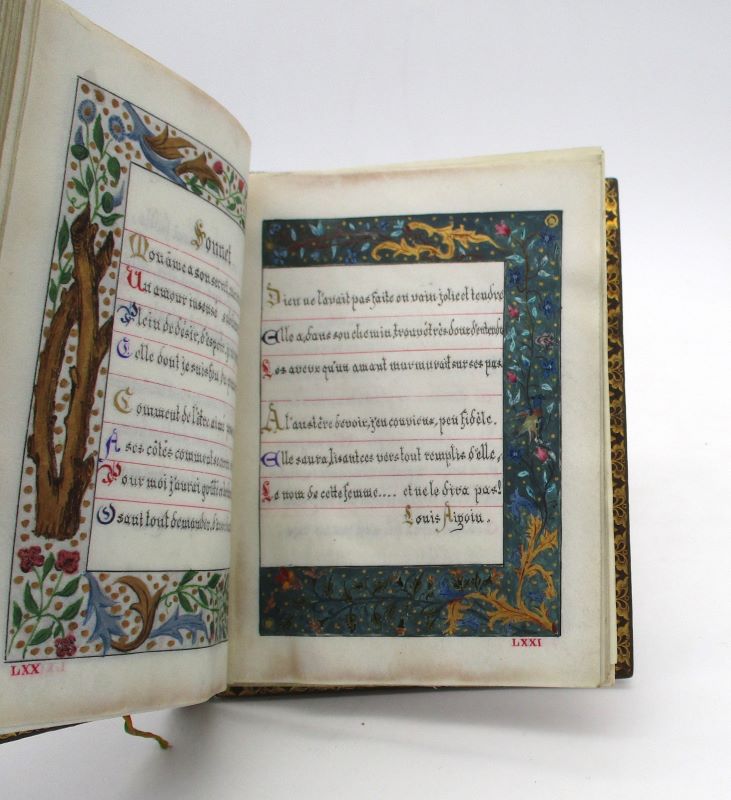 Sonnet
Mon âme a son secret,
Un amour insensé
Plein de désir, d'espoir,
Celle dont je suis fou,
Comment de l'être aimé
A ses côtés comment
Pour moi j'aurai goûté
Osant tout demander,
LXX
Dieu ne l'avait pas faite en vain jolie et tendre
Elle a, dans son chemin, trouvé très doux d'entendre
Les aveux qu'un amant murmurait sur ses pas
A l'austère devoir, j'en conviens, peu fidèle.
Elle saura, lisant ces vers tout remplis d'elle,
Le nom de cette femme.... et ne le dira pas!
Louis Aigoin.
LXXI